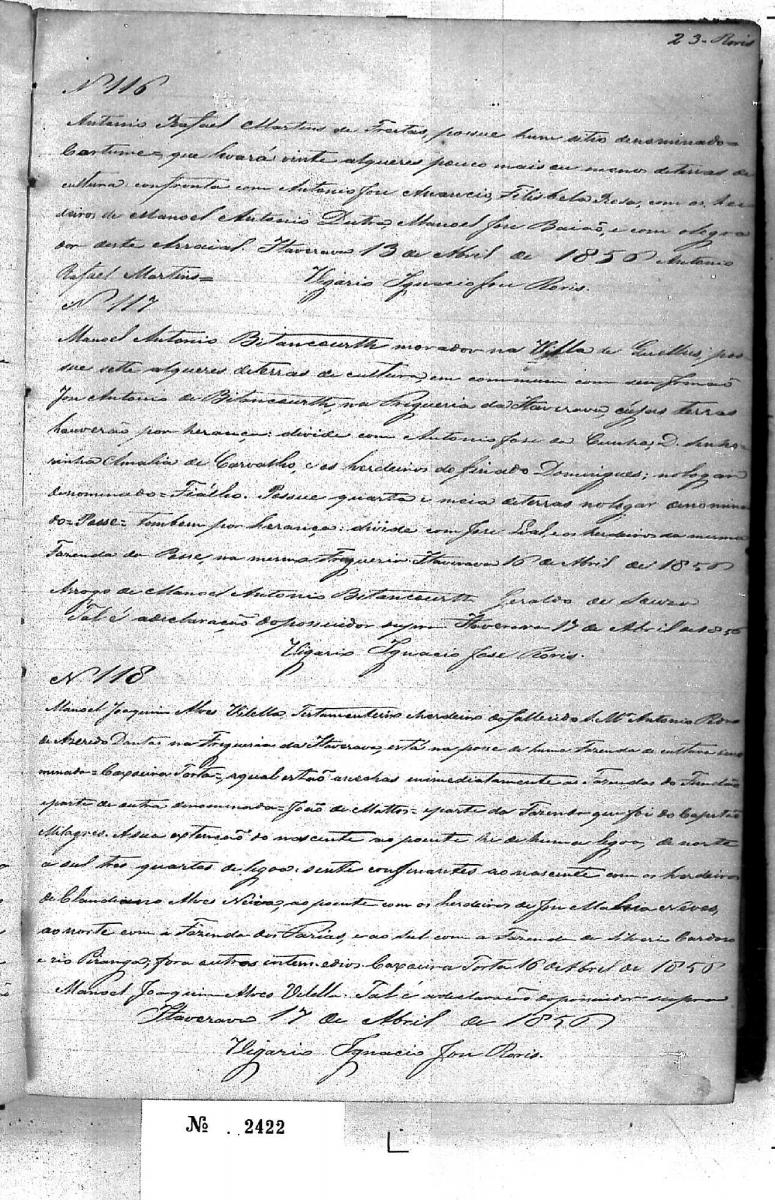 23 - Roris
Nº 116
Antonio Rafael Martins de Freitas, possue hum sitio denominado =
que levará vinte alqueres pouco mais ou menos de terras de
cultura confronta com Antonio Jose Aparecio, Felisbela Rosa, com os her-
deiros de Manoel Antonio Dutra, Manoel Jose Baião, e com o logra
dor deste Arraial. Itaverava 13 de Abril de 1856 Antonio
Rafael Martins =
Vigario Ignacio Jose Roris.
Nº 117
Manoel Antonio Bitancourth morador na Villa de Quellus, pos-
sue sette alqueres de terras de cultura, em commum com seu Irmão
Jose Antonio de Bitancourth, na Frigueria da Itaverava cujas terras
houverão por herança: divide com Antonio Jose da Cunha, D. Senho-
rinha Amalia de Carvalho, e os herdeiros do Domingues; no logar
denominado = Fiálho. Possue quarta e meia de terras no logar denomina
do = Posse = tambem por herança: divide com Jose Leal, e os herdeiros da mesma
Fazenda da Posse, na mesma Frigueria. Itaverava 16 de Abril de 1856
Arrogo de Manoel Antonio Bitancourth Geraldo de Souza
Tal é a declaração do possuidor supra Itaverava 17 de Abril de 1856
Vigario Ignacio Jose Roris.
Nº 118
Manoel Joaquim Alves Vilella, Testamenteiro e herdeiro do fallecido S. Mr. Antonio
de Azeredo Dantas na Frigueria da Itaverava, está na posse de huma Fazenda de cultura deno
minada = Caxoeira Torta =, a qual estão anechas immediatamente as Fazendas do Fundão
e parte de outra denominada = João de Mattos = e parte da Fazenda que foi do Capitão
Milagres. A sua extenção do nascente ao poente he de huma legoa, de norte
a sul tres quartos de legoa: sente confinantes ao nascente com os herdeiros
de Claudiano Alves Neiva, ao poente com os herdeiros de Jose e Neves,
ao norte com a Fazenda dos Farias, e ao sul com a Fazenda de Silverio Cardoso
e rio Piranga, fora outros intermedios Caxoeira Torta 16 de Abril de 1856
Manoel Joaquim Alves Vilella. Tal é a declaração do possuidor supra
Itaverava 17 de Abril de 1856
Vigario Ignacio Jose Roris.
Nº 2422